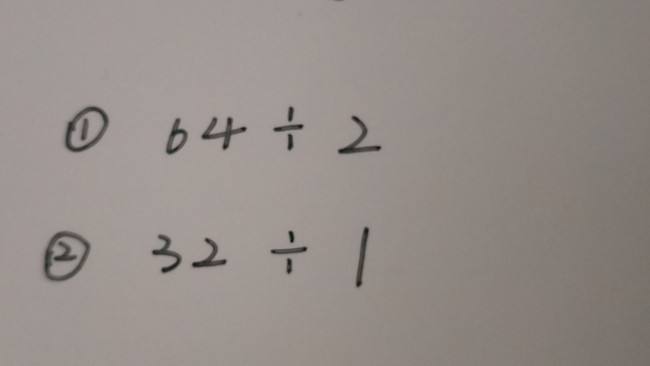 ① 64 ÷ 2
② 32 ÷ 1